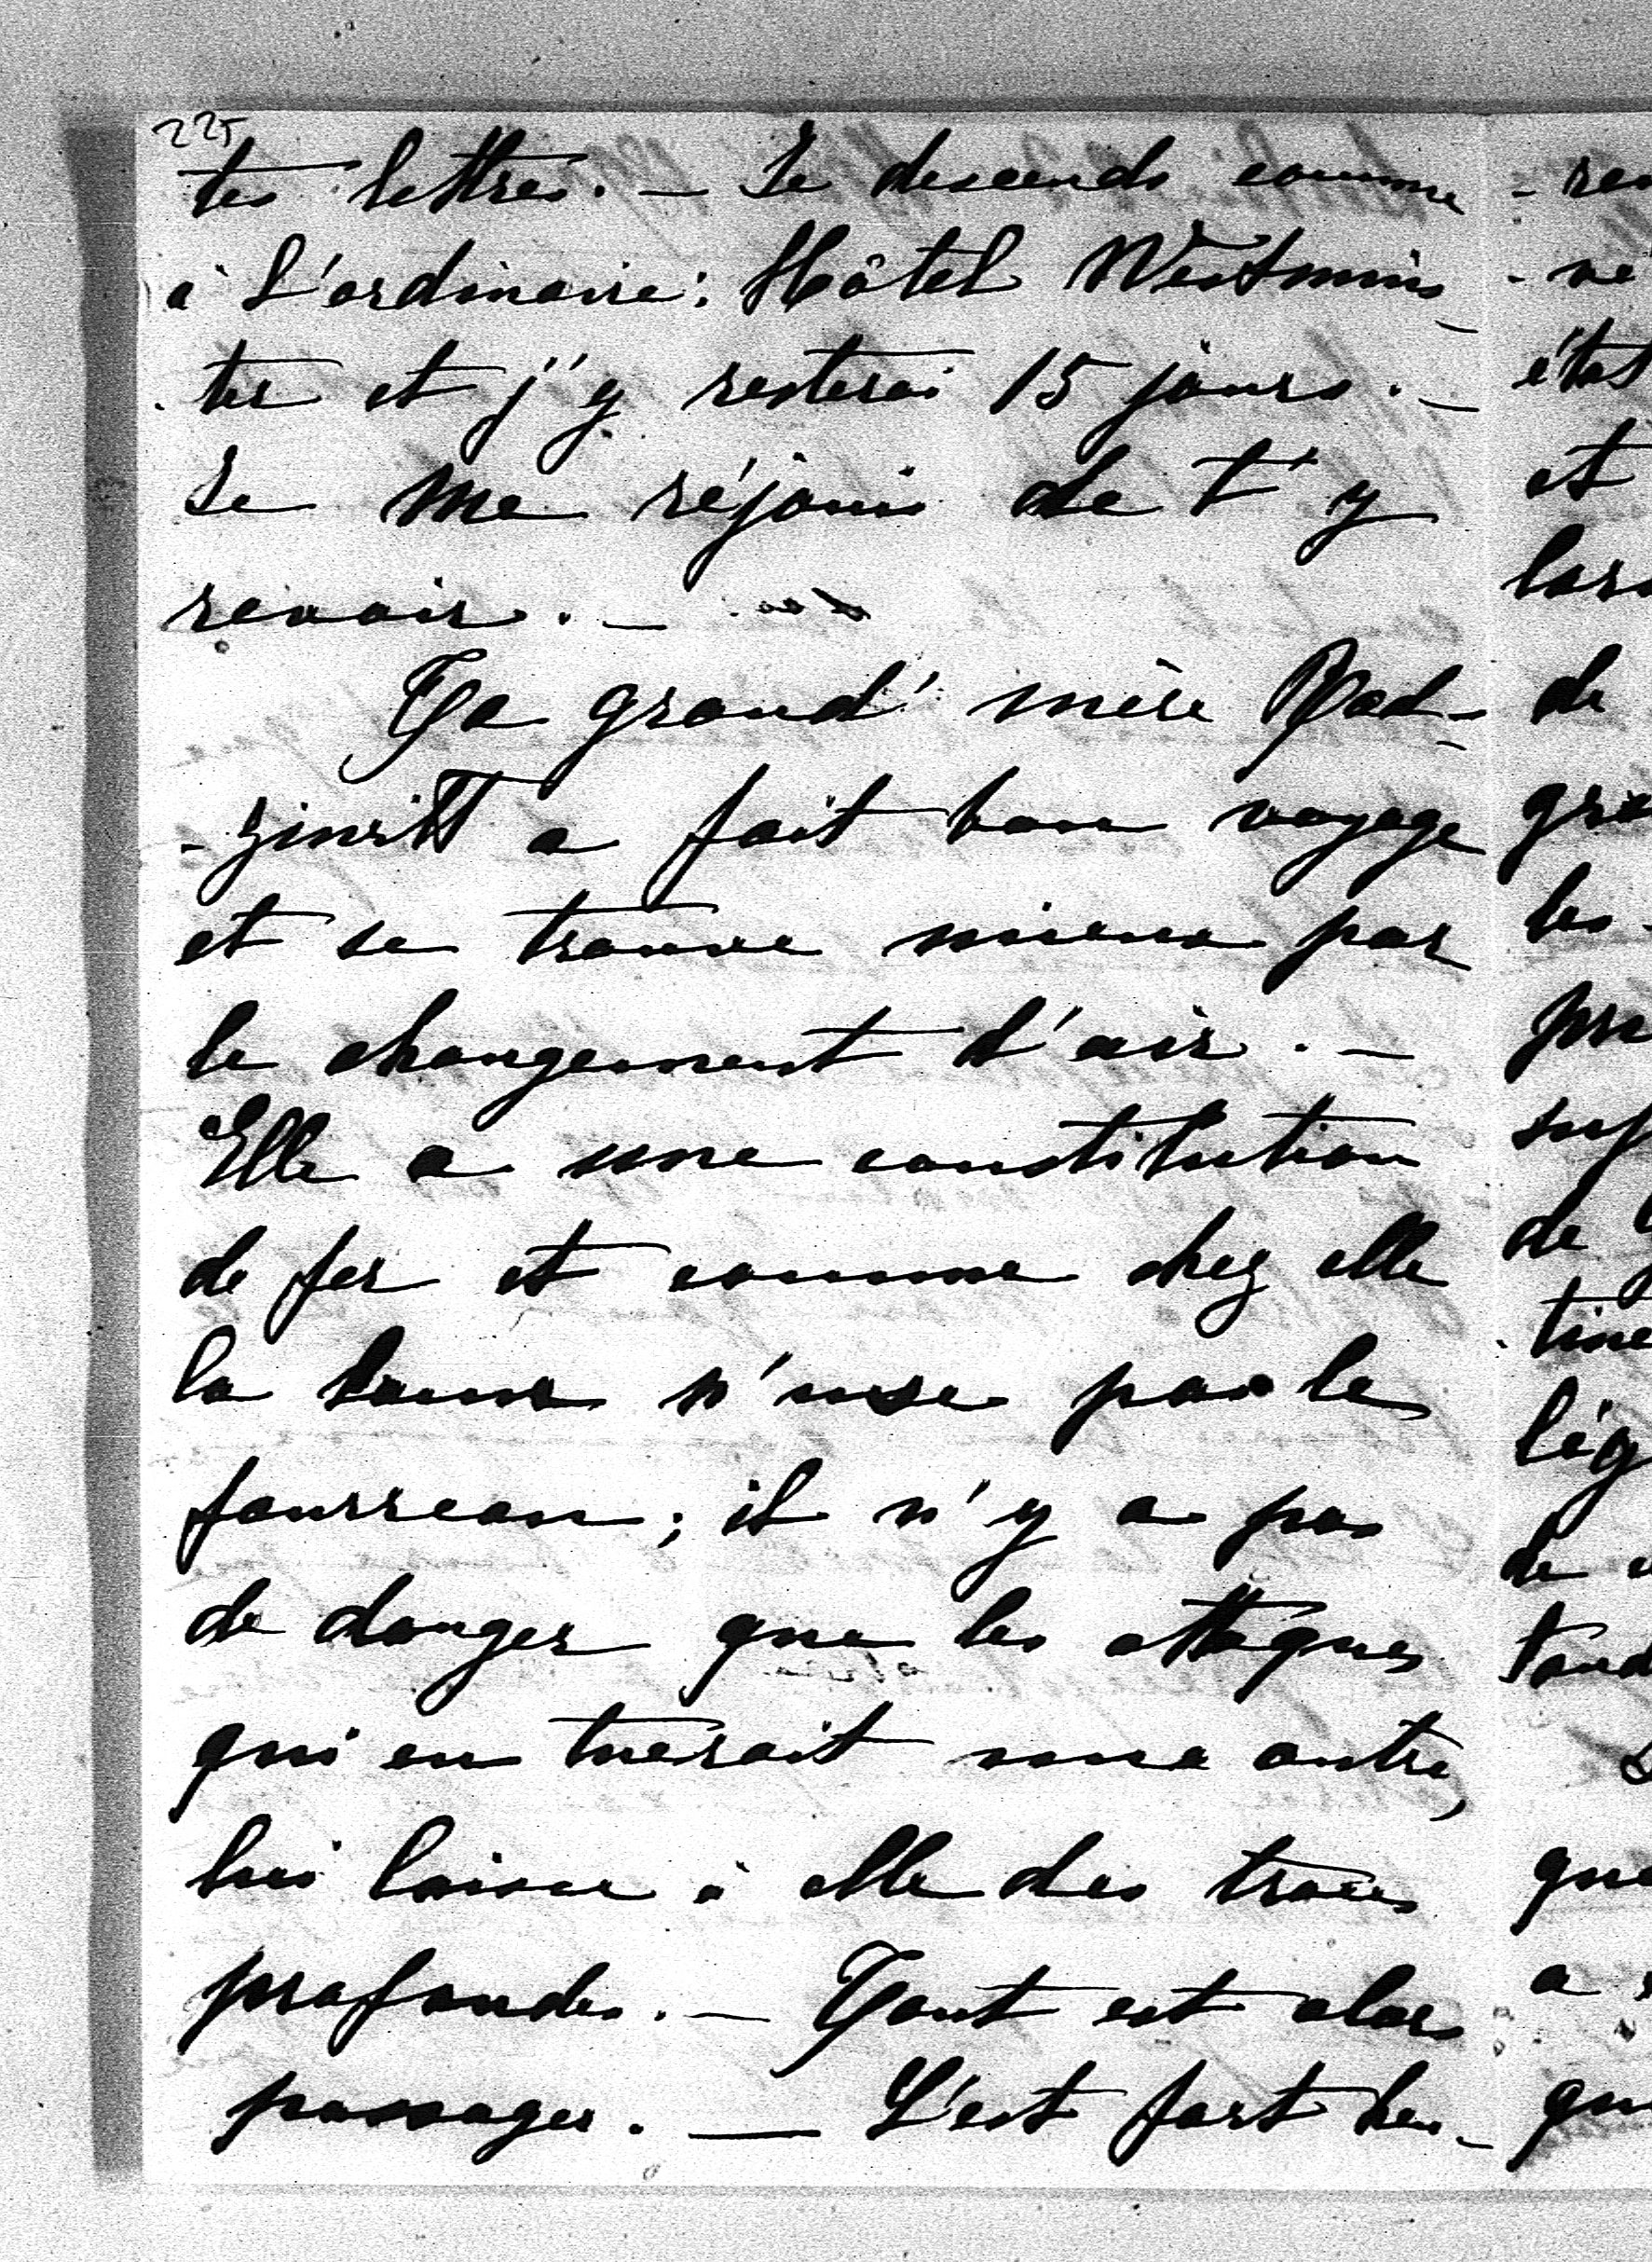 225
tes lettres. — Je descends comme
à l'ordinaire: Hôtel Westmins-
-ter et j'y resterai 15 jours. —
Je me réjouis de t'y
revoir. —
Ta grand' mère Rad-
-ziwill a fait bon voyage
et se trouve mieux par
le changement d'air. —
Elle a une constitution
de fer et comme chez elle
la lame n'use pas le
fourreau; il n'y a pas
de danger que les attaques
qui en tuerait une autre,
lui laisse à elle des traces
profondes. — Tout est alors
passager. — C'est fort heu-
- 
- 
état
et
de
de
de